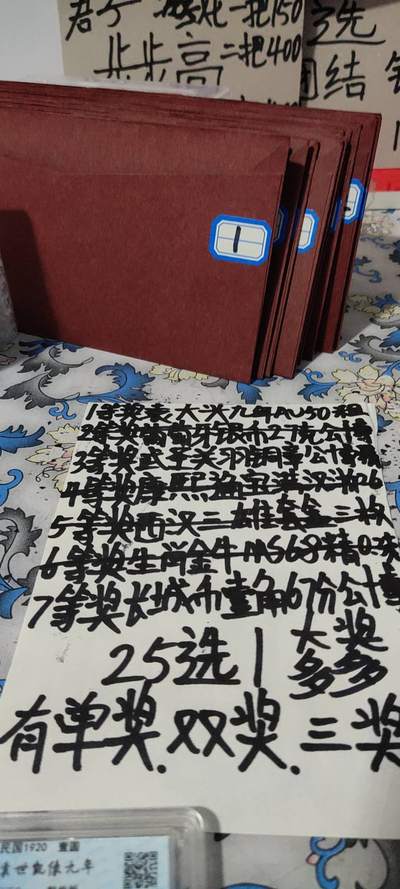 君子 一把150
步步高二把400
选
团结
1
1等奖袁大头九年AU50粗
2等奖葡萄牙银币27克公博
3等奖武子关邓铜章公博
4等奖康熙
5等奖西汉三雄套盒三枚
6等奖生肖金牛MS68精
7等奖长城币壹角67分公博
25选1 大奖多多
有单奖.双奖.三奖
民国1920 壹圆
袁世凯像九年